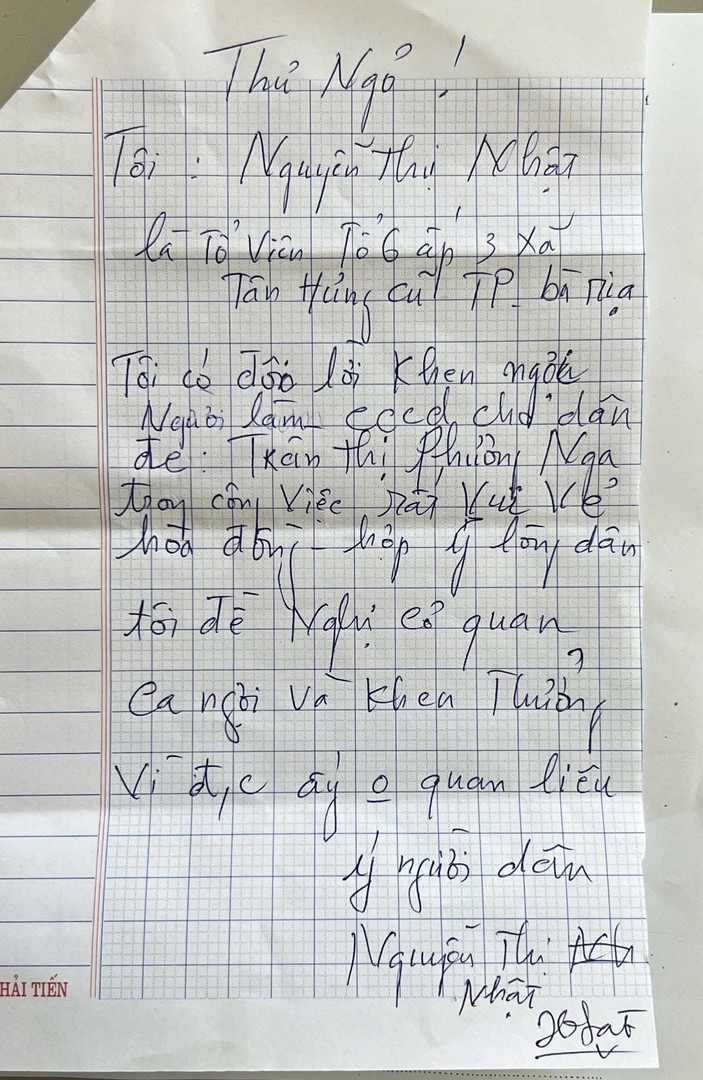 Thư Ngỏ !
Tôi : Nguyễn Thị Nhật
là Tổ Viên Tổ 6 ấp 3 xã
Tân Hưng cũ TP. bà rịa
Tôi có đôi lời khen ngợi
Người làm cccd cho dân
đc : Trần Thị Phương Nga
trong công việc rất vui vẻ
hòa đồng - hợp ý lòng dân
tôi đề Nghị cơ quan
Ca ngợi và khen Thưởng
Vì đ/c ấy o quan liêu
ý người dân
Nguyễn Thị
Nhật
HẢI TIẾN